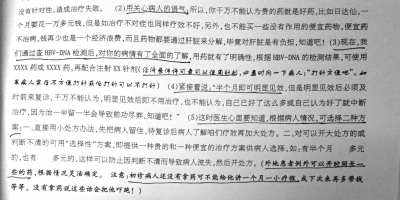 没有针对性，造成治疗失败。 (2)用关心病人的语气，所以，你千万不能认为贵的药就是好药，比如日达仙，一
个月要花一万多元钱，但是如治疗不对症也同样疗效不好，另外，也不能买一些没有作用的便宜药物，便宜药
不治病，钱再少也是一个经济浪费，而且药物都要通过肝脏来分解，毕竟对肝脏是有负担，知道吧！(3)现在，我
们通过查HBV-DNA检测后，对你的病情有了全面的了解，用药就有了明确性，根据HBV-DNA的检测结果，可使用
XXXX药或XXXX药，再配合注射XX针剂(
病人家在不方便打针或怕打针可以不打针) (4)紧接着说："半个月即可明显见效，但是明显见效后必须及
时前来复诊，千万不能认为，明显见效后即不用治疗，也不能认为，自己已好了这么多或自己认为好了就中断
治疗，因为治一半留一半会导致前功尽弃，知道吧！" (5)这时医生心里要知道，根据病人情况，可选择二种方
案：一、直接用小处方办法，先把病人留住，待复诊后病人了解咱们疗效再加大处方。二、对可以开大处方的或
判断不清的可用"选择性"方案，即提供一种贵的和一种便宜的治疗方案供病人选择，如：有半个月 多元
的，也有 多元的，这样可以防止因判断不清而导致病人流失，然后开处方。(外地患者例外可以开时间长一
些的药，根据情况灵活确定。 注意：初诊病人还没有拿药可不能给他讲一个月一小疗程，或下次来再多带钱
等等。没有拿药说这些话会把他吓跑！)